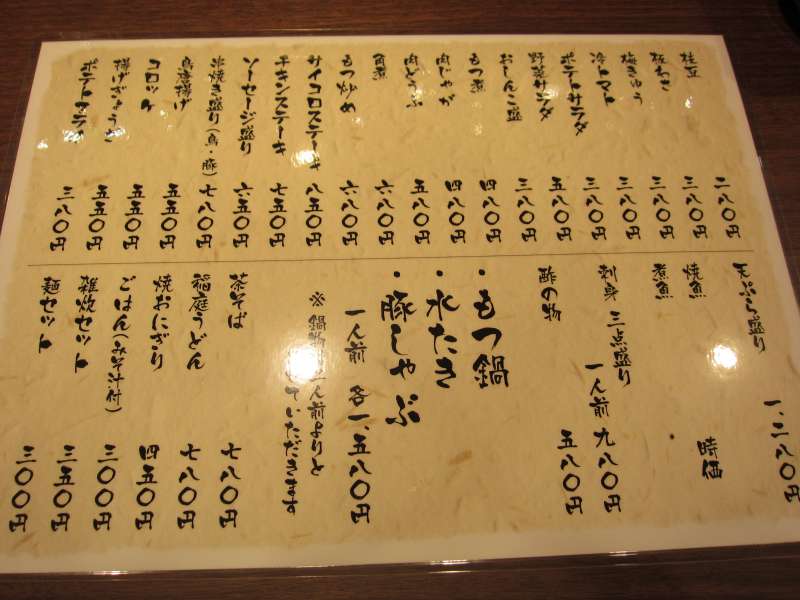 枝豆 二八〇円
板わさ 三八〇円
梅きゅう 三八〇円
冷トマト 三八〇円
ポテトサラダ 三八〇円
野菜サラダ 五八〇円
おしんこ盛 三八〇円
もつ煮 四八〇円
肉じゃが 四八〇円
肉どうふ 五八〇円
角煮 六八〇円
もつ炒め 六八〇円
サイコロステーキ 八五〇円
チキンステーキ 七五〇円
ソーセージ盛り 六五〇円
串焼き盛り(鳥・豚) 七八〇円
鳥唐揚げ 五五〇円
コロッケ 五五〇円
揚げぎょうざ 五五〇円
ポテトフライ 三八〇円
天ぷら盛り 一、二八〇円
焼魚
煮魚
時価
刺身 三点盛り 一人前 九八〇円
酢の物 五八〇円
・もつ鍋
・水たき
・豚しゃぶ
一人前 各一、五八〇円
※鍋物 人前よりと
していただきます
茶そば 七八〇円
稲庭うどん 七八〇円
焼おにぎり 四五〇円
ごはん(みそ汁付) 三〇〇円
雑炊セット 三五〇円
麺セット 三〇〇円